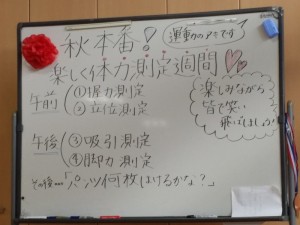 秋本番!
運動の秋です
楽しく体力測定週間!
午前
①握力測定
②立位測定
楽しみながら
皆で笑い
飛ばしましょう!
午後
③吸引測定
④脚力測定
その後…「パンツ何枚はけるかな?」